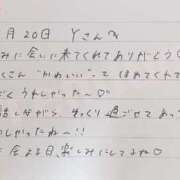 月20日 Yさんへ
みに会いに来てくれてありがとう♡
くさん "かわいい" って ほめてくれて
うれしかった〜♡
話しながら、ゆっくり過ごせてあっ
しかったね〜!!
会える日、楽しみにしてるね♡